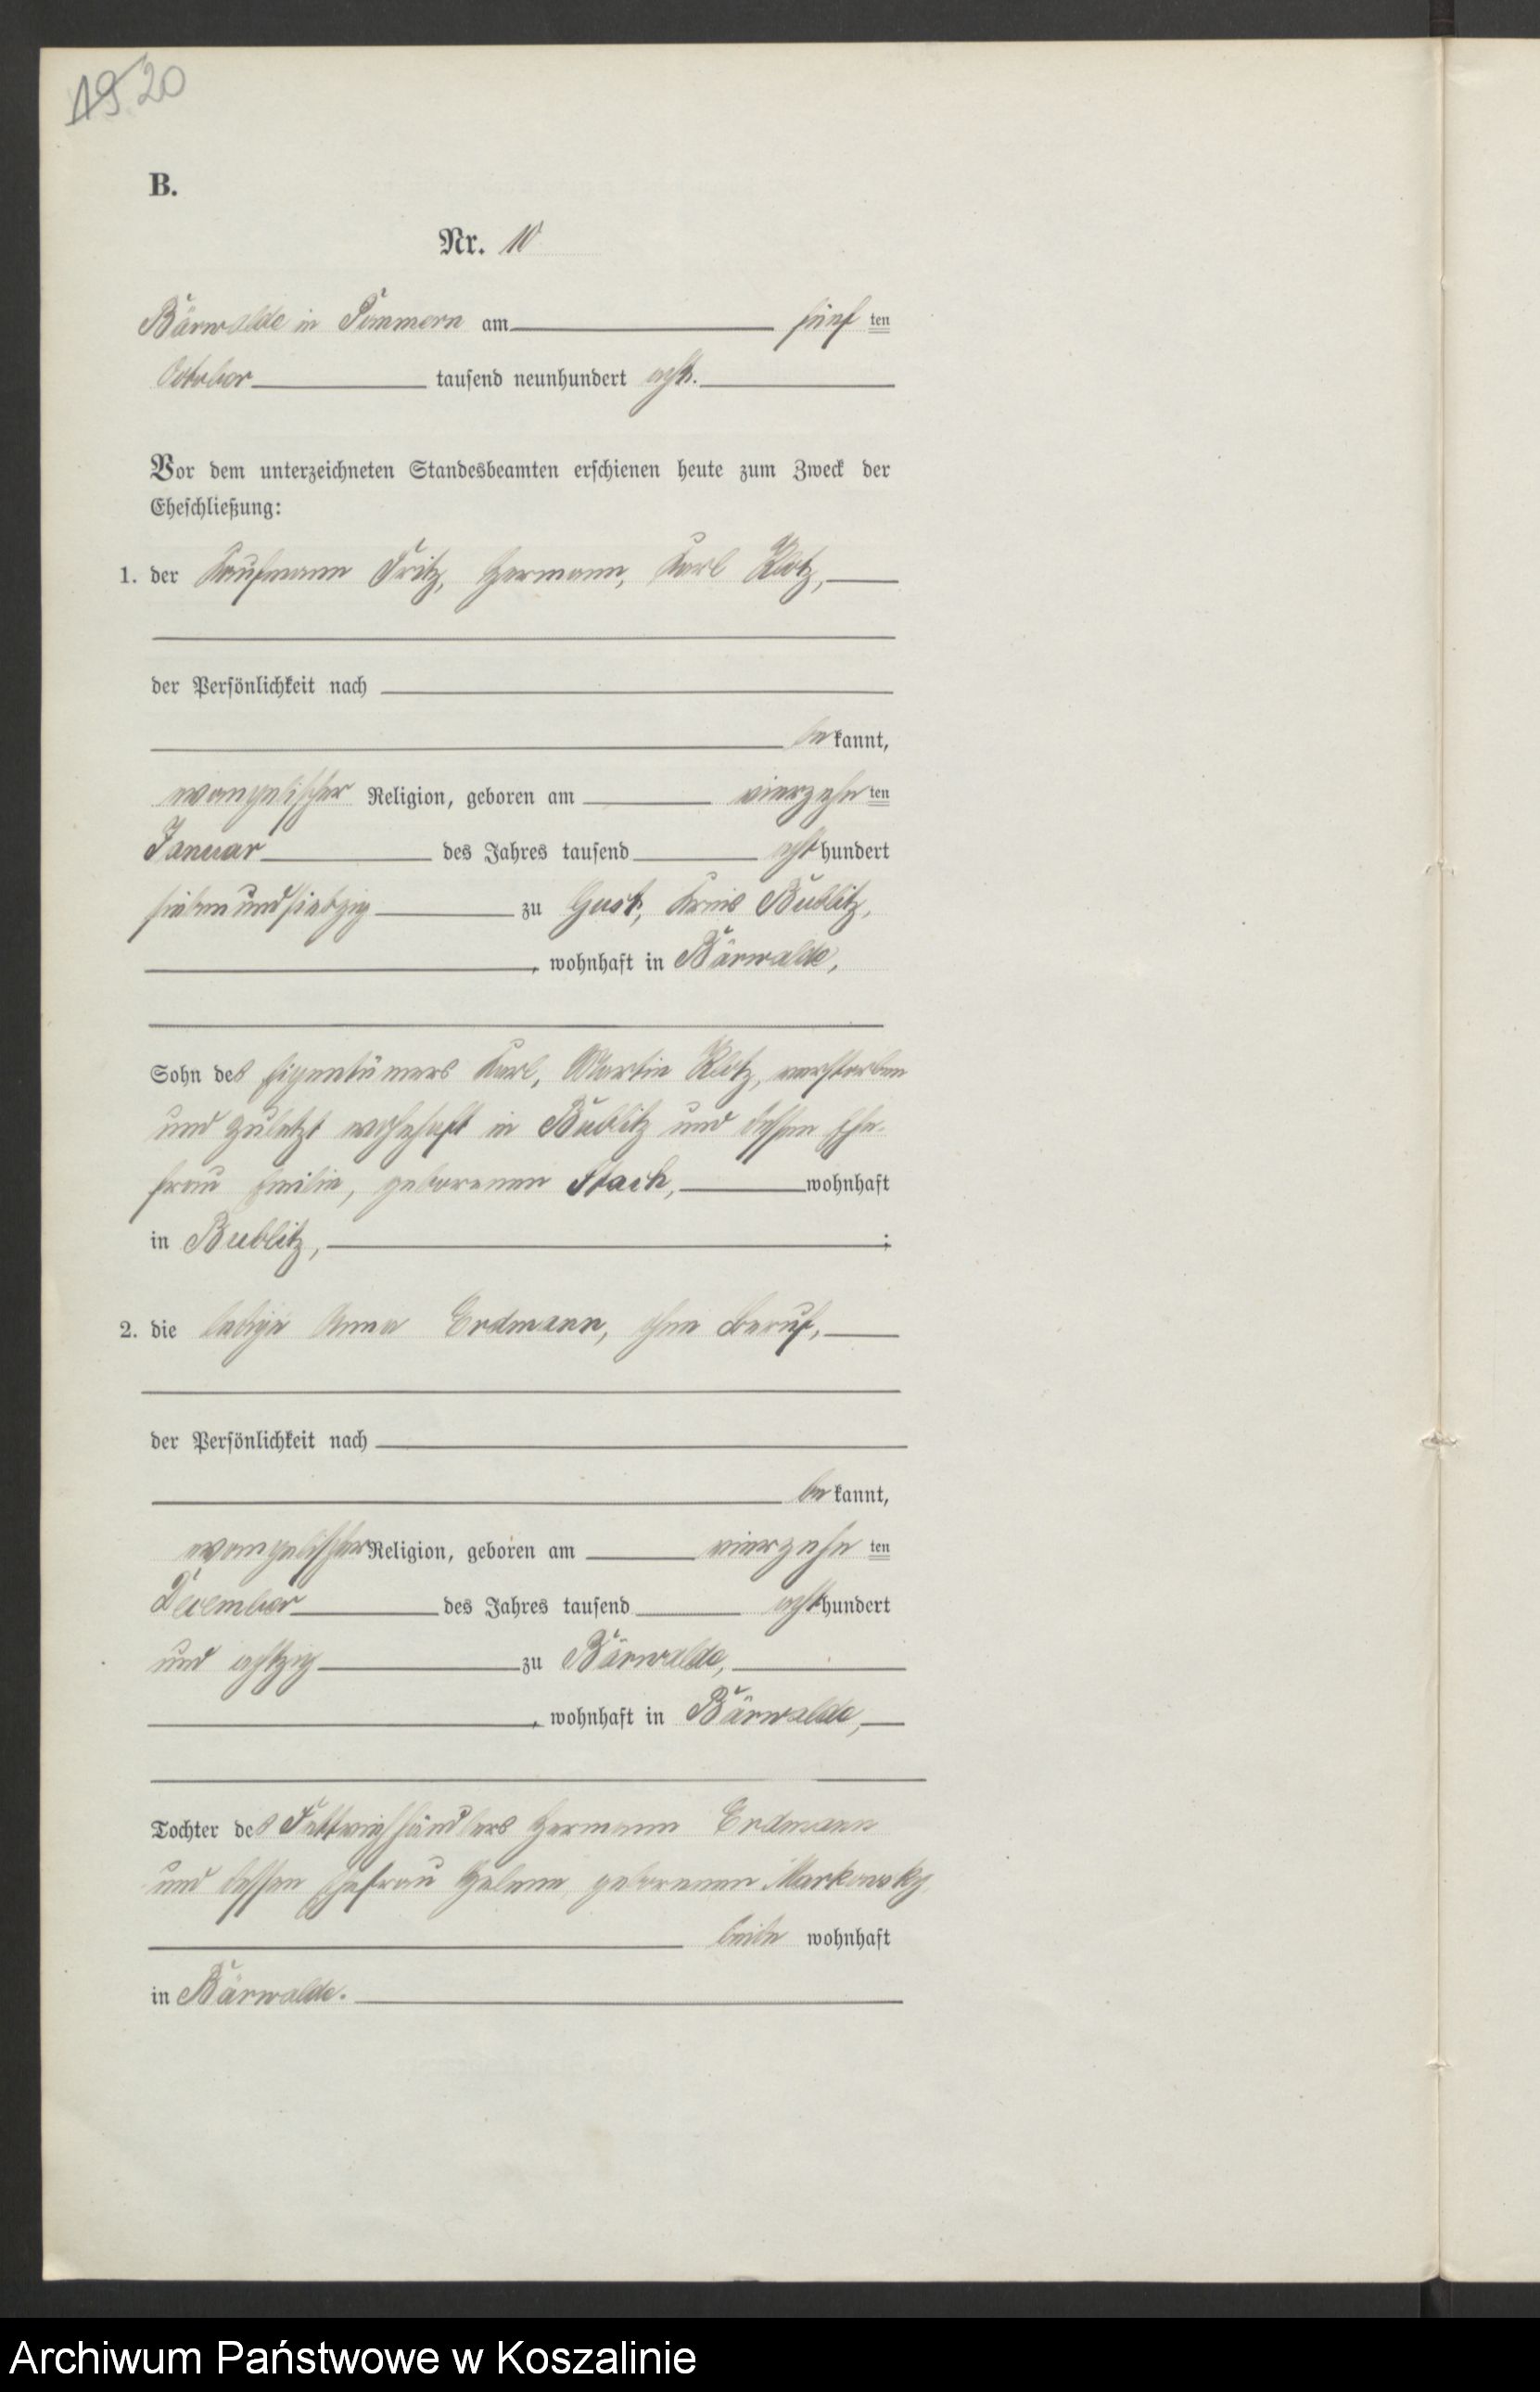 19 20
B.
Nr. 10
Bärwalde in Pommern am fünf ten
October tausend neunhundert acht.
Vor dem unterzeichneten Standesbeamten erschienen heute zum Zweck der
Eheschließung:
1. der Kaufmann Fritz, Hermann, Karl Klotz,
der Persönlichkeit nach
be kannt,
evangelischer Religion, geboren am vierzehn ten
Januar des Jahres tausend acht hundert
siebenundsiebzig zu Gust, Kreis Bublitz,
, wohnhaft in Bärwalde,
Sohn des Eigentümers Karl, Martin Klotz, verstorben
und zuletzt wohnhaft in Bublitz und dessen Ehe-
frau Emilie, geborenen Stach, wohnhaft
in Bublitz, ;
2. die ledige Anna Erdmann, ohne Beruf,
der Persönlichkeit nach
be kannt,
evangelischer Religion, geboren am vierzehn ten
December des Jahres tausend acht hundert
und achtzig zu Bärwalde,
, wohnhaft in Bärwalde,
Tochter des Fettviehhändlers Hermann Erdmann
und dessen Ehefrau Helene geborenen Markowsky
beide wohnhaft
in Bärwalde.
Archiwum Państwowe w Koszalinie